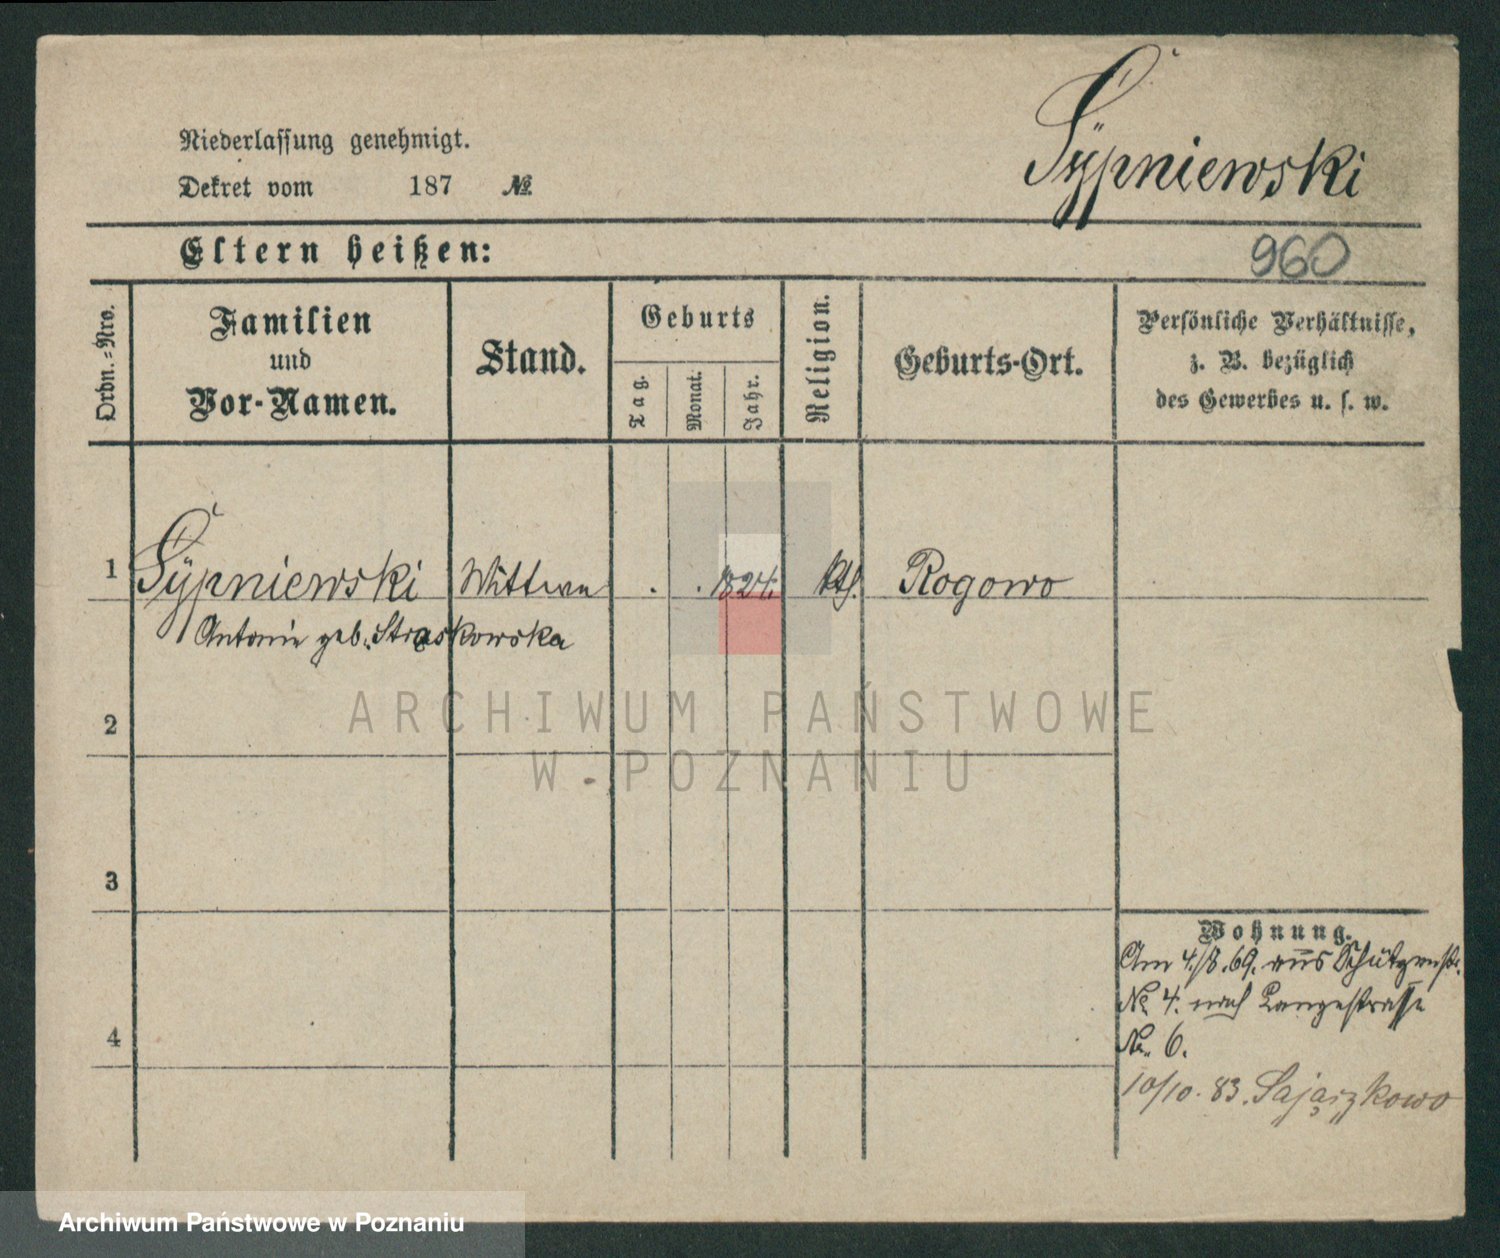 Sÿpniewski
Niederlassung genehmigt.
Dekret vom 187 №
Eltern heißen:
960
Ordn.-Nro.
Familien
und
Vor-Namen.
Stand.
Geburts
Tag.
Monat.
Jahr.
Religion.
Geburts-Ort.
Persönliche Verhältnisse,
z. B. bezüglich
des Gewerbes u. s. w.
1 Sÿpniewski Wittwe . . 1824. kth. Rogowo
Antonie geb. Straskowska
2
3
4
Wohnung.
Am 4./8. 69. aus Schützenstr.
№ 4. nach Langestrasse
№. 6.
10/10. 83.
ARCHIWUM PAŃSTWOWE
W POZNANIU
Archiwum Państwowe w Poznaniu